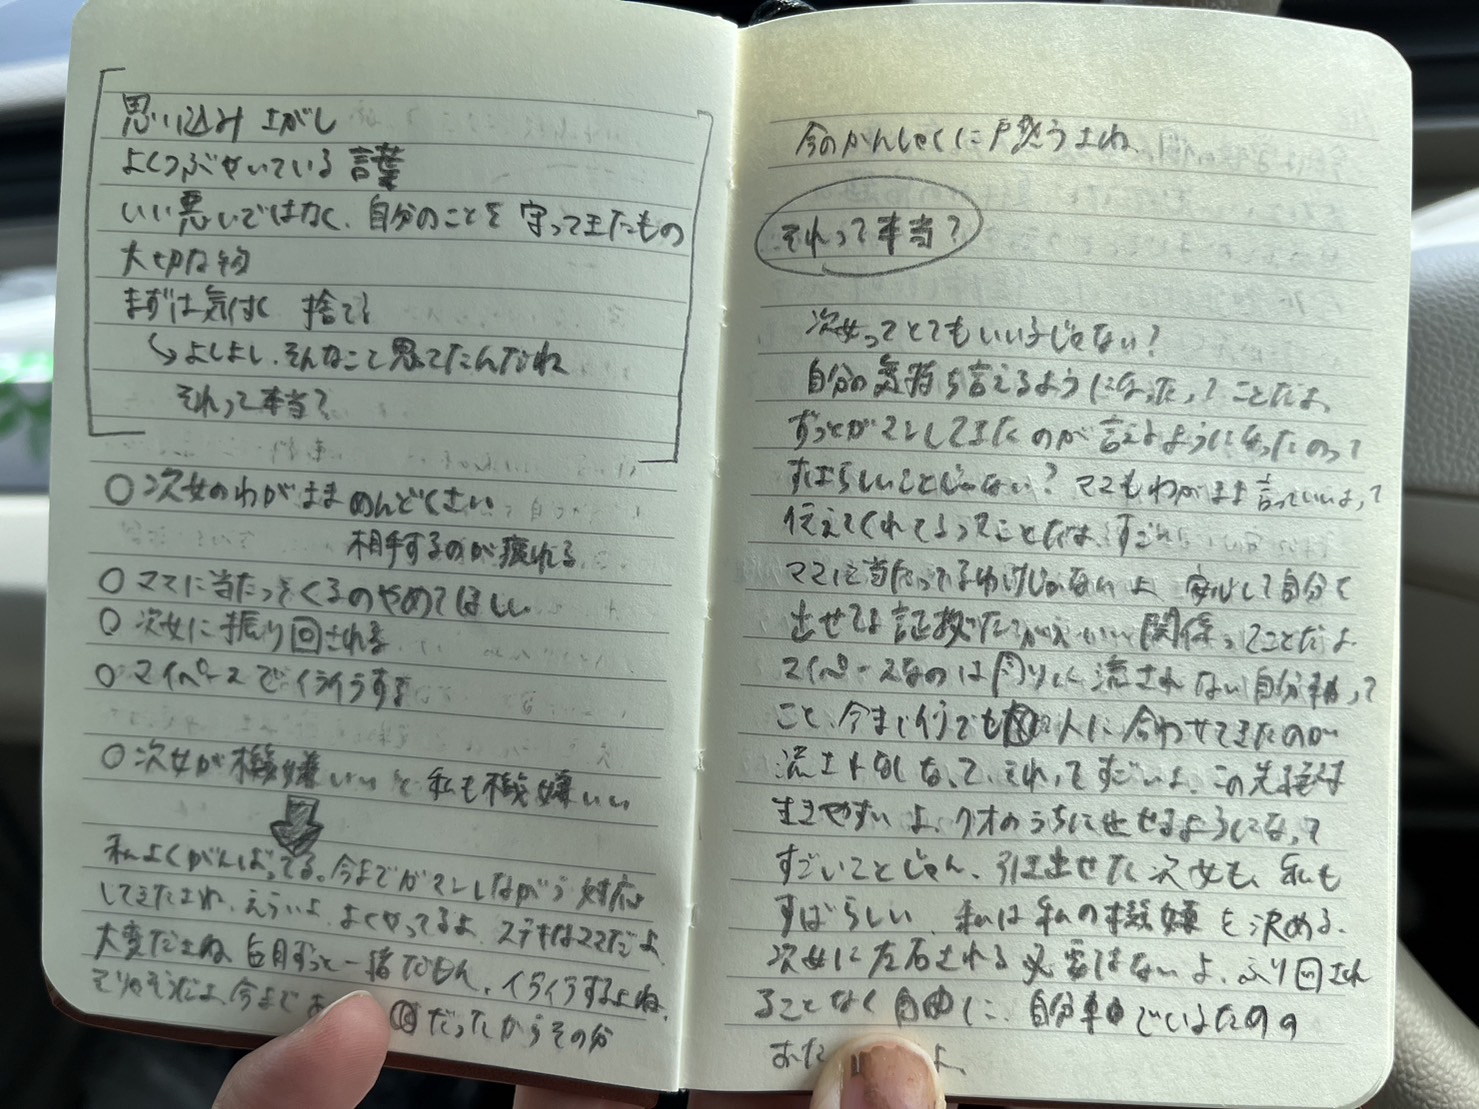 思い込み 上がし
よくつぶやいている 言葉
いい悪いではなく、自分のことを 守ってきたもの
大切な物
まずは気付く 捨てる
↳ よしよし、そんなこと思ってたんだね
それって本当?
○ 次女のわがまま めんどくさい
相手するのが疲れる
○ ママに当たってくるのやめてほしい
○ 次女に振り回される
○ マイペースでイライラする
○ 次女が機嫌いいと 私も機嫌いい
私よくがんばってる。今までガマンしながら 対応
してきたよね、えらいよ、よくやってるよ ステキなママだよ
大変だよね 毎日ずっと一緒だもん、イライラするよね、
そりゃそうだよ、今まで だったからその分
今のかんしゃくに戸惑うよね、
それって本当?
次女ってとてもいい子じゃない?
自分の気持ち言えるようになった、てことだよ、
ずっとガマンしてきたのが言えるようになったのって
すばらしいことじゃない? ママもわがまま言っていいよって
伝えてくれてるってことだよ、すごい
ママに当たってるわけじゃないよ 安心して自分を
出せてる証拠だ いい関係ってことだよ
マイペースなのは周りに流されない自分軸って
こと、今まで 人に合わせてきたのが
流されなくなって、それってすごいよ、この先
生きやすいよ、 のうちに出せるようになって
すごいことじゃん、引き出せた次女も、私も
すばらしい、私は私の機嫌を決める、
次女に左右される必要はないよ、ふり回され
ることなく自由に、自分軸でいるための
おた よ、